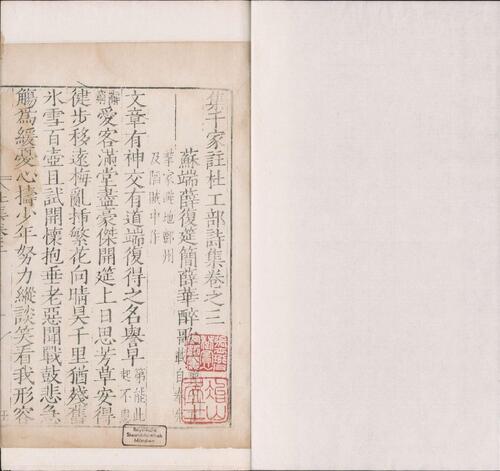 集千家註杜工部詩集卷之三
蘇端薛復筵簡薛華醉歌
挈家避地鄜州
及陷賊中作
文章有神交有道端復得之名譽早
愛客滿堂盡豪傑開筵上日思芳草安得
健步移遠梅亂揷繁花向晴昊千里猶殘舊
氷雪百壺且試開懷抱垂老惡聞戰鼓悲急
觴爲緩憂心擣少年努力縱談笑看我形容
Bayerische
Staatsbibliothek
München